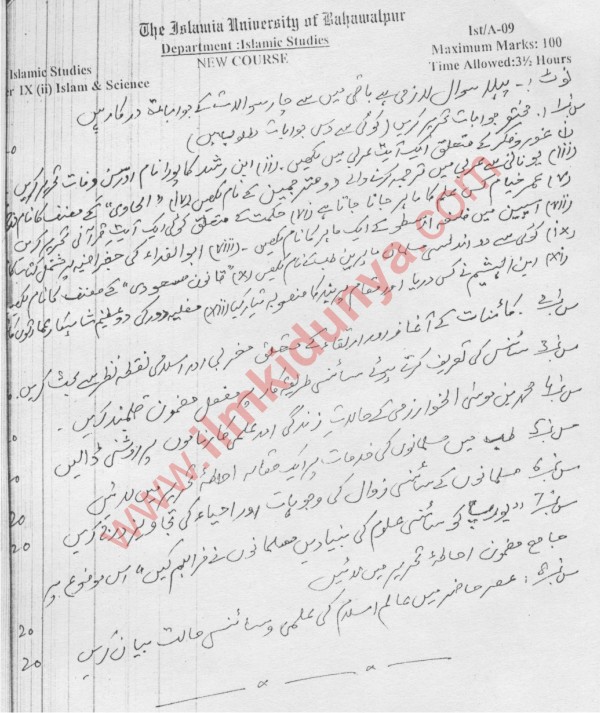 The Islamia University of Bahawalpur
Department :Islamic Studies
NEW COURSE
Ist/A-09
Maximum Marks: 100
Time Allowed:3½ Hours
Islamic Studies
r IX (ii) Islam & Science
نوٹ :۔ پہلا سوال لازمی ہے باقی میں سے چار سوالات کے جوابات درکار ہیں
س نمبر 1. مختصر جوابات تحریر کریں (کوئی سے دس جوابات مطلوب ہیں)
(i) غور و فکر کے متعلق ایک آیت عربی میں لکھیں۔ (ii) ابن رشد کا پورا نام اور سن وفات تحریر کریں۔
(iii) یونانی سے عربی میں ترجمہ کرنے والے دو مترجمین کے نام لکھیں (iv) "الحاوی" کے مصنف کا نام
(v) عمر خیام کس علم کا ماہر جانا جاتا ہے (vi) حکمت کے متعلق کوئی ایک آیت قرآنی تحریر کریں
(vii) اسپین میں فلسفہ ارسطو کے ایک ماہر کا نام لکھیں۔ (viii) ابوالفداء کی جغرافیہ پر مشتمل کتاب کا
(ix) کوئی سے دو اندلسی مسلمان ماہرین طب کے نام لکھیں (x) "قانون مسعودی" کے مصنف کا نام لکھیں
(xi) ابن الہیثم نے کس دریا اور مقام پر بند کا منصوبہ تیار کیا (xii) مغلیہ دور کی دو عظیم شاہکار عمارتوں کا
س نمبر 2۔ کائنات کے آغاز اور ارتقاء کے متعلق مغربی اور اسلامی نقطہ نظر سے بحث کریں۔
س نمبر 3 سائنس کی تعریف کرتے ہوئے سائنسی طریقہ کار پر مفصل مضمون قلمبند کریں۔
س نمبر 4 محمد بن موسیٰ الخوارزمی کے حالات زندگی اور علمی کارناموں پر روشنی ڈالیں
س نمبر 5 طب میں مسلمانوں کی خدمات پر ایک مقالہ احاطۂ تحریر میں لائیں
س نمبر 6 مسلمانوں کے سائنسی زوال کی وجوہات اور احیاء کی تجاویز درج کریں 20
س نمبر 7 "یورپ کو سائنسی علوم کی بنیادیں مسلمانوں نے فراہم کیں" اس موضوع پر 20
جامع مضمون احاطۂ تحریر میں لائیں 20
س نمبر 8: عصر حاضر میں عالم اسلام کی علمی و سائنسی حالت بیان کریں 20
www.ilmkidunya.com